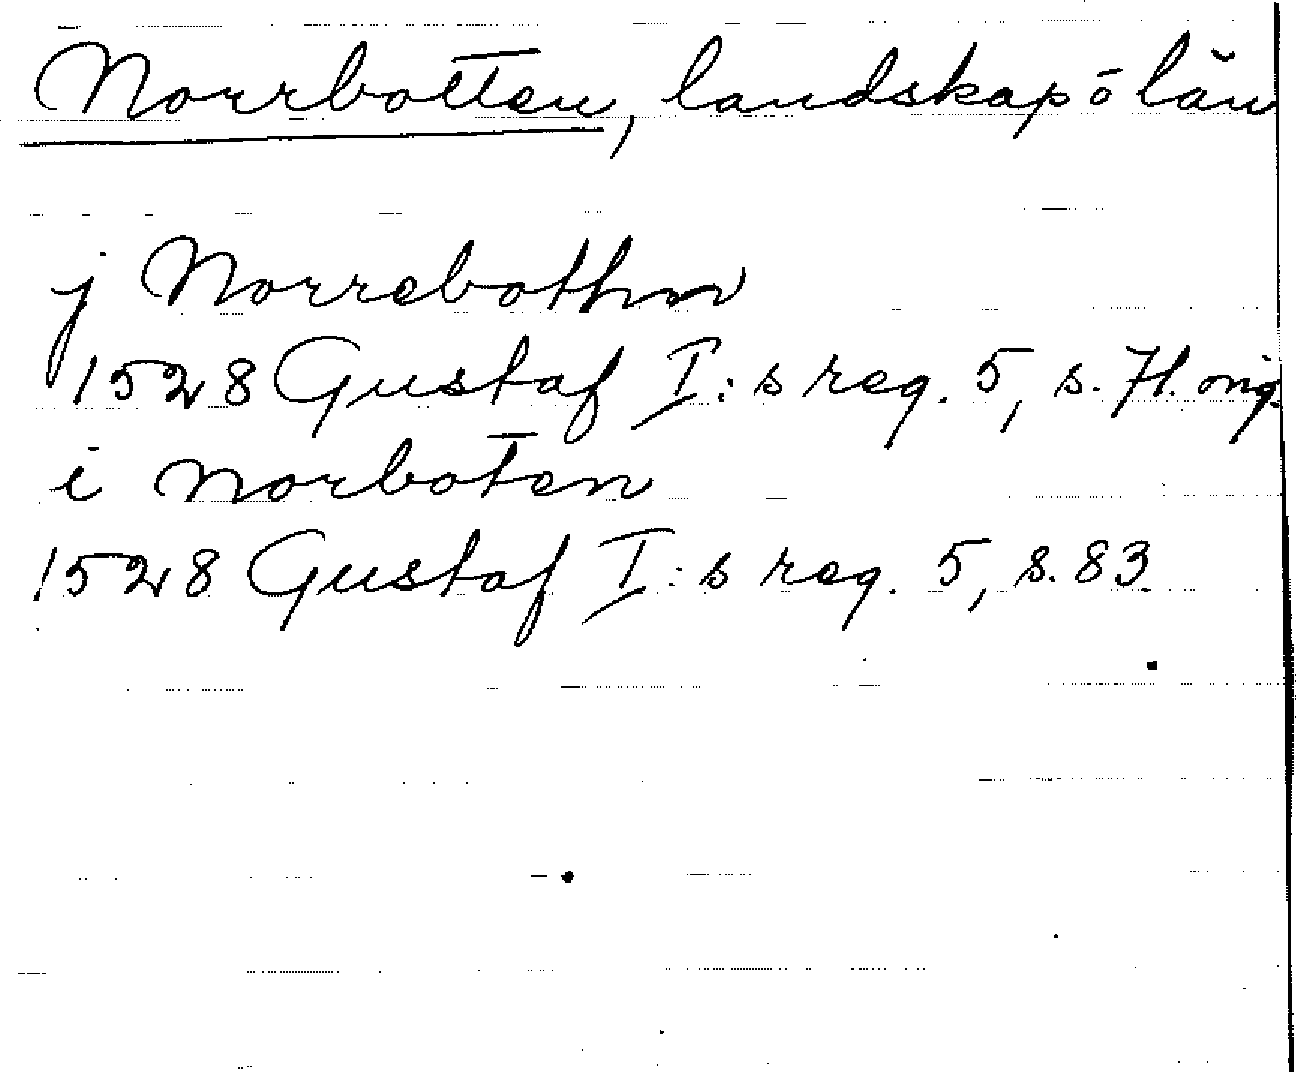 Norrbotten, landskap o län
j Norrebothnn
1528 Gustaf I:s reg. 5, s. 71. orig.
i Norboten
1528 Gustaf I:s reg. 5, s. 83